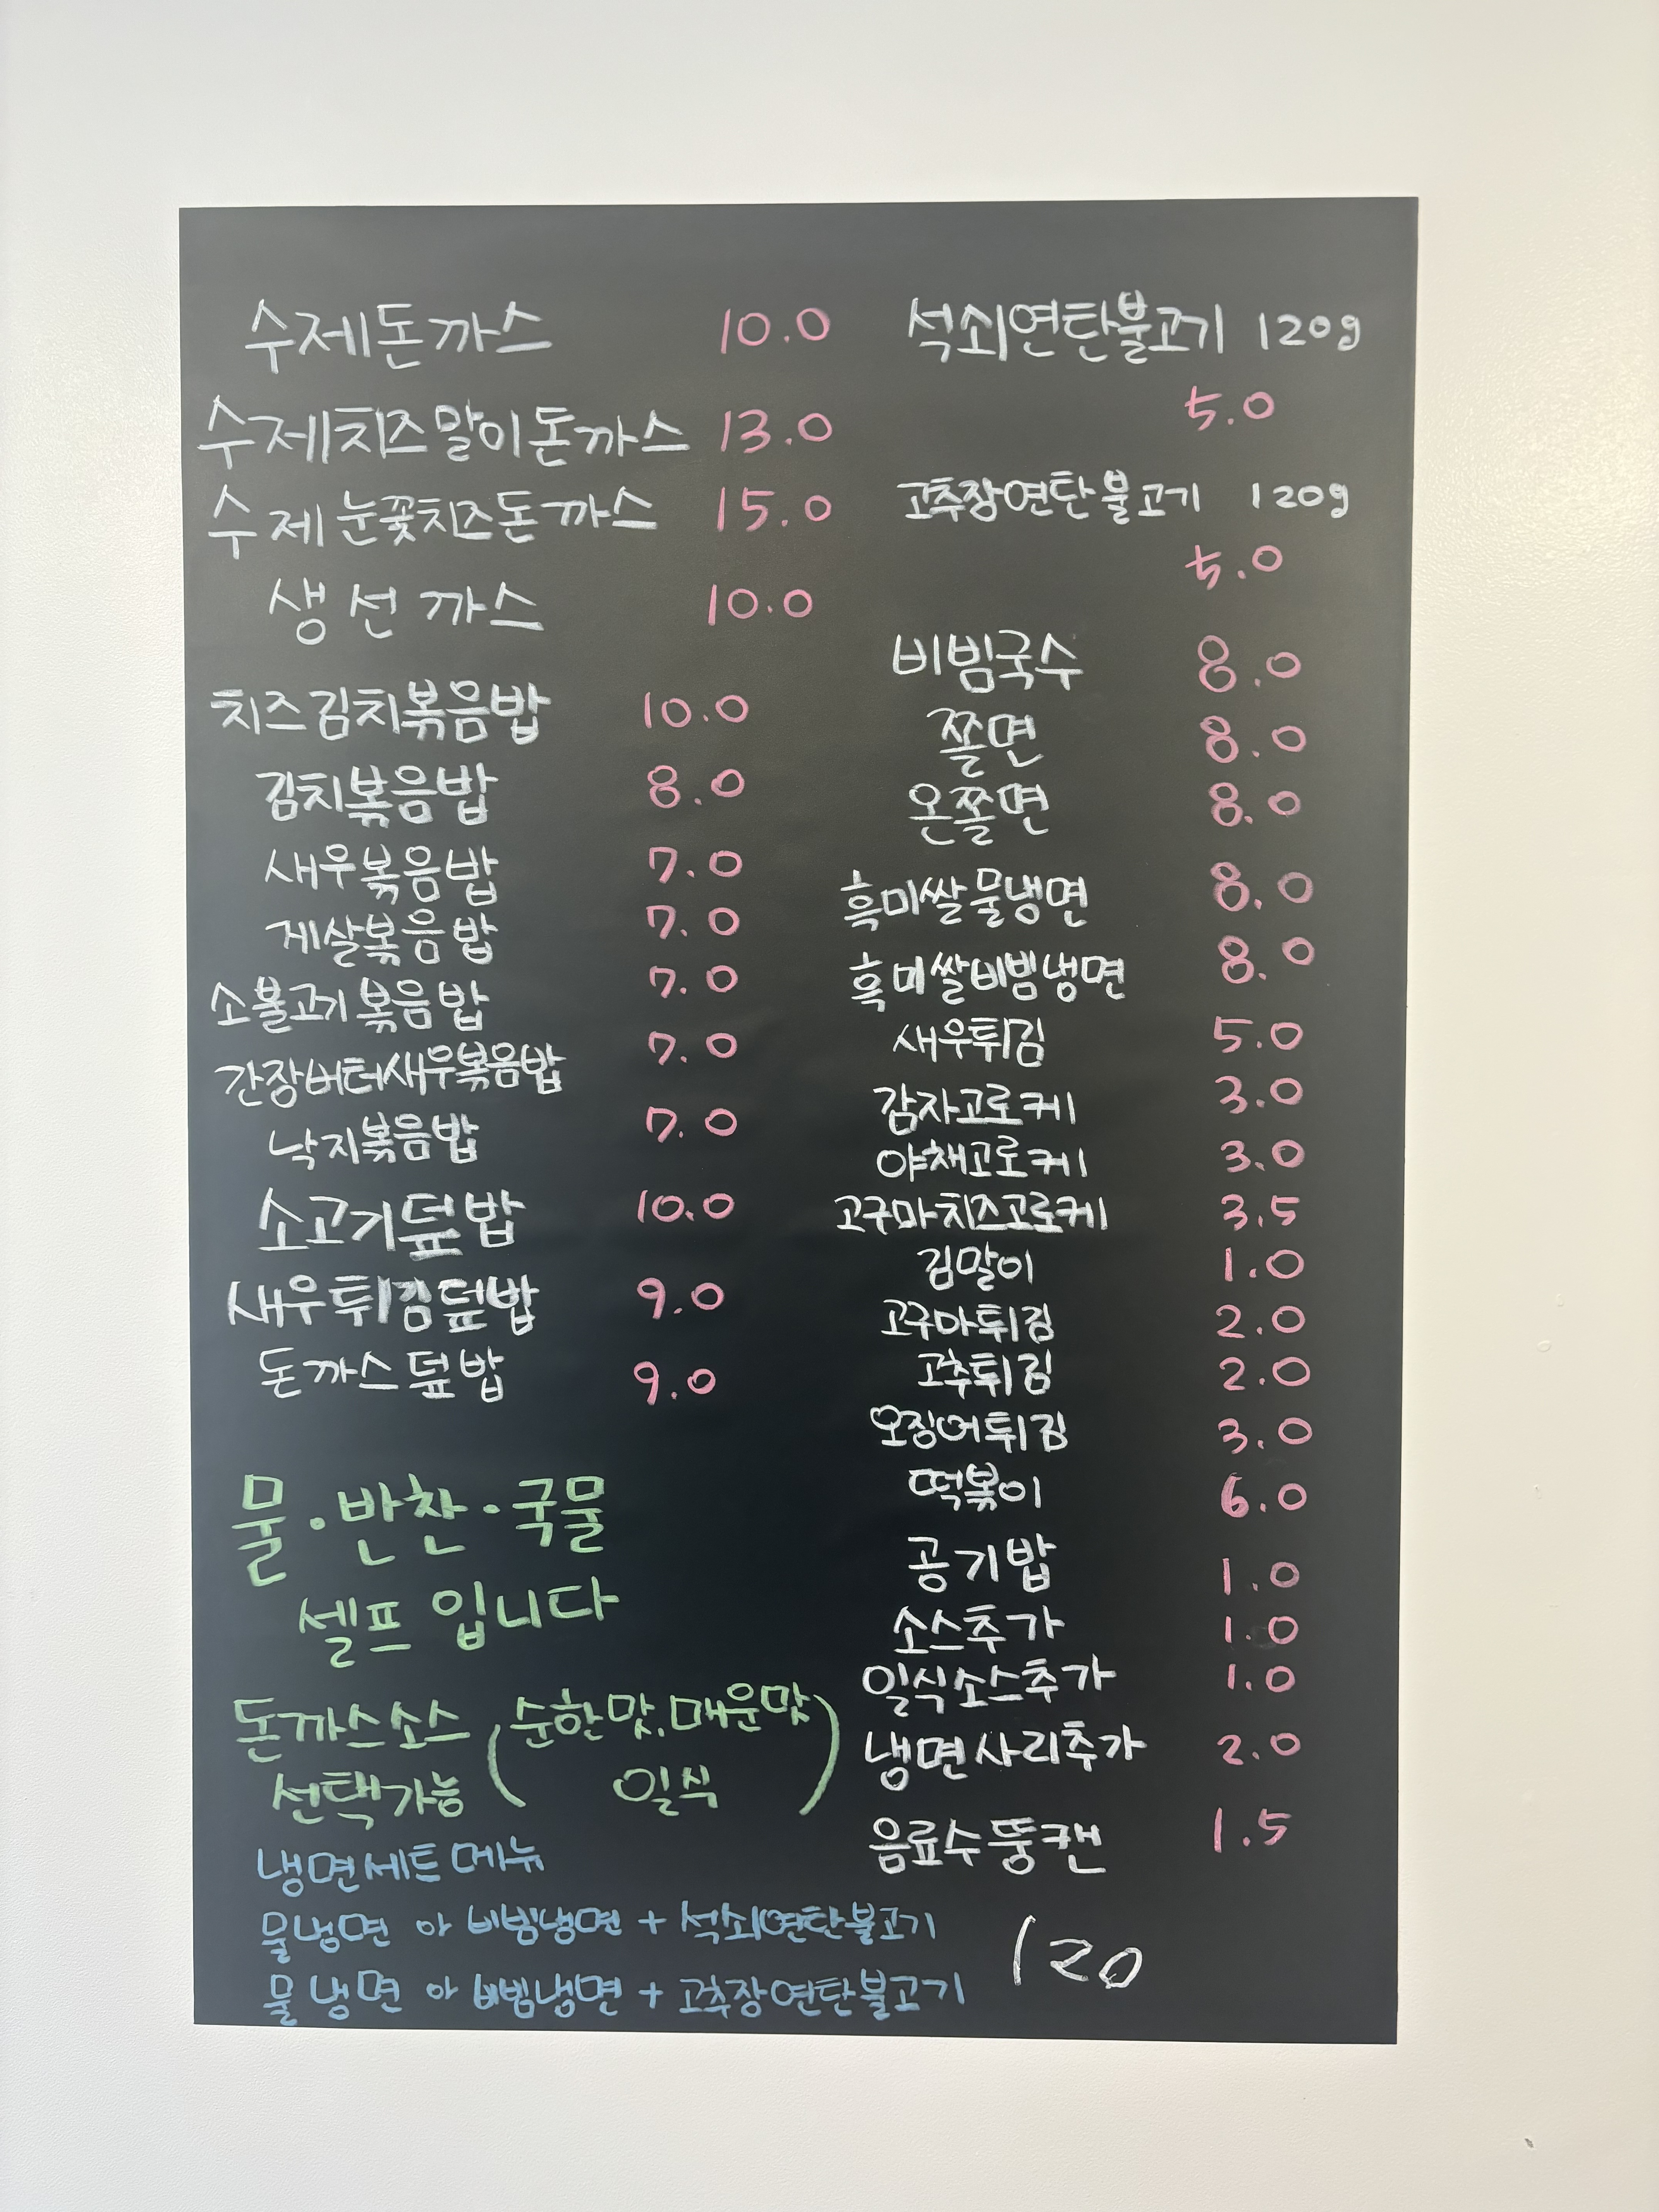 수제돈까스 10.0
수제치즈말이돈까스 13.0
수제눈꽃치즈돈까스 15.0
생선까스 10.0
치즈김치볶음밥 10.0
김치볶음밥 8.0
새우볶음밥 7.0
게살볶음밥 7.0
소불고기볶음밥 7.0
간장버터새우볶음밥 7.0
낙지볶음밥 7.0
소고기덮밥 10.0
새우튀김덮밥 9.0
돈까스덮밥 9.0
물·반찬·국물
셀프 입니다
돈까스소스 (순한맛, 매운맛
선택가능 일식)
냉면세트메뉴
물냉면 아 비빔냉면 + 석쇠연탄불고기
물냉면 아 비빔냉면 + 고추장연탄불고기
120
석쇠연탄불고기 120g
5.0
고추장연탄불고기 120g
5.0
비빔국수 8.0
쫄면 8.0
온쫄면 8.0
흑미쌀물냉면 8.0
흑미쌀비빔냉면 8.0
새우튀김 5.0
감자고로케 3.0
야채고로케 3.0
고구마치즈고로케 3.5
김말이 1.0
고구마튀김 2.0
고추튀김 2.0
오징어튀김 3.0
떡볶이 6.0
공기밥 1.0
소스추가 1.0
일식소스추가 1.0
냉면사리추가 2.0
음료수뚱캔 1.5